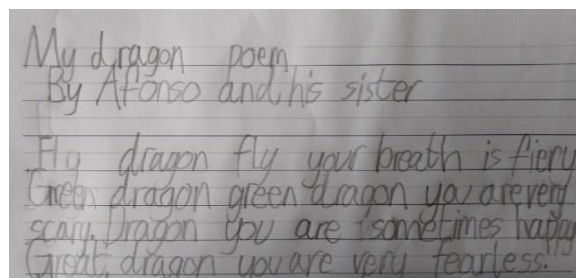 My dragon poem
By Afonso and his sister
Fly dragon fly your breath is fiery
Green dragon green dragon you are very
scary. Dragon you are sometimes happy
Great dragon you are very fearless.